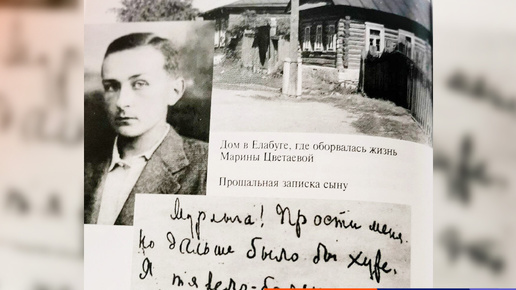 Дом в Елабуге, где оборвалась жизнь
Марины Цветаевой
Прощальная записка сыну
Мурлыга! Прости меня.
Но дальше было бы хуже.
Я тяжело-